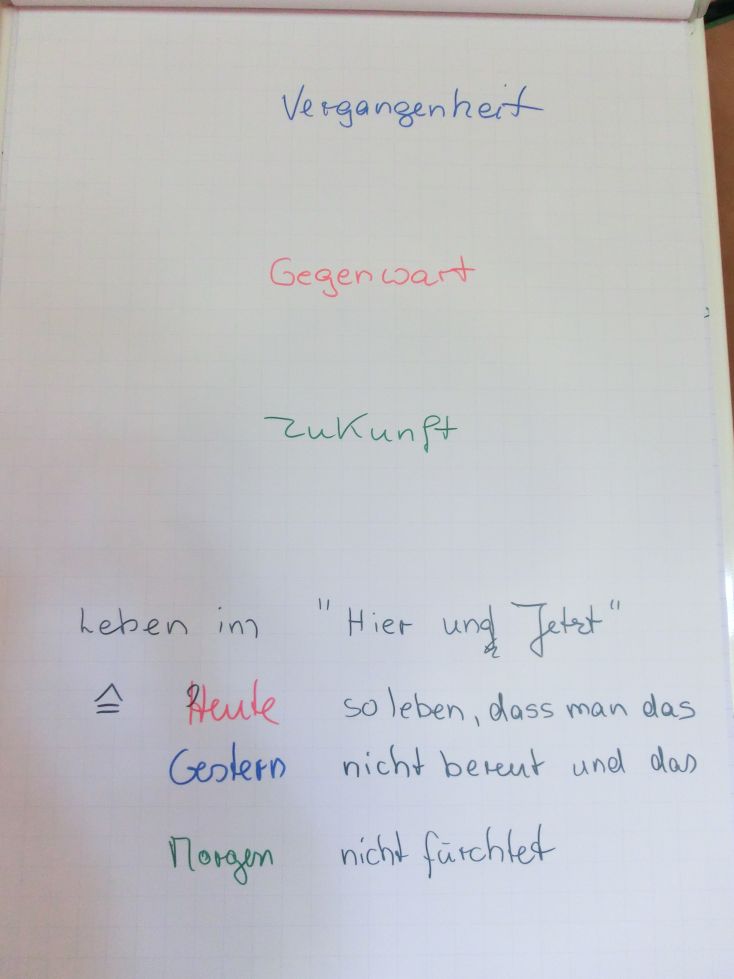 Vergangenheit
Gegenwart
Zukunft
Leben im "Hier und Jetzt"
≙ Heute so leben, dass man das
Gestern nicht bereut und das
Morgen nicht fürchtet